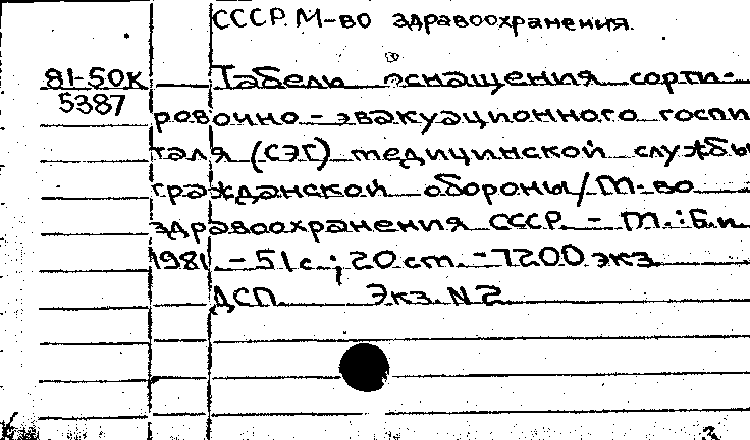 СССР. М-во здравоохранения.
81-50К Табели оснащения сорти-
5387
ровочно-эвакуационного госпи
таля (СЭГ) медицинской службы
гражданской обороны/М-во
здравоохранения СССР. - М.: Б.и.
1981. - 51 с.; 20 см. - 7200 экз.
ДСП. Экз. N 2.
3